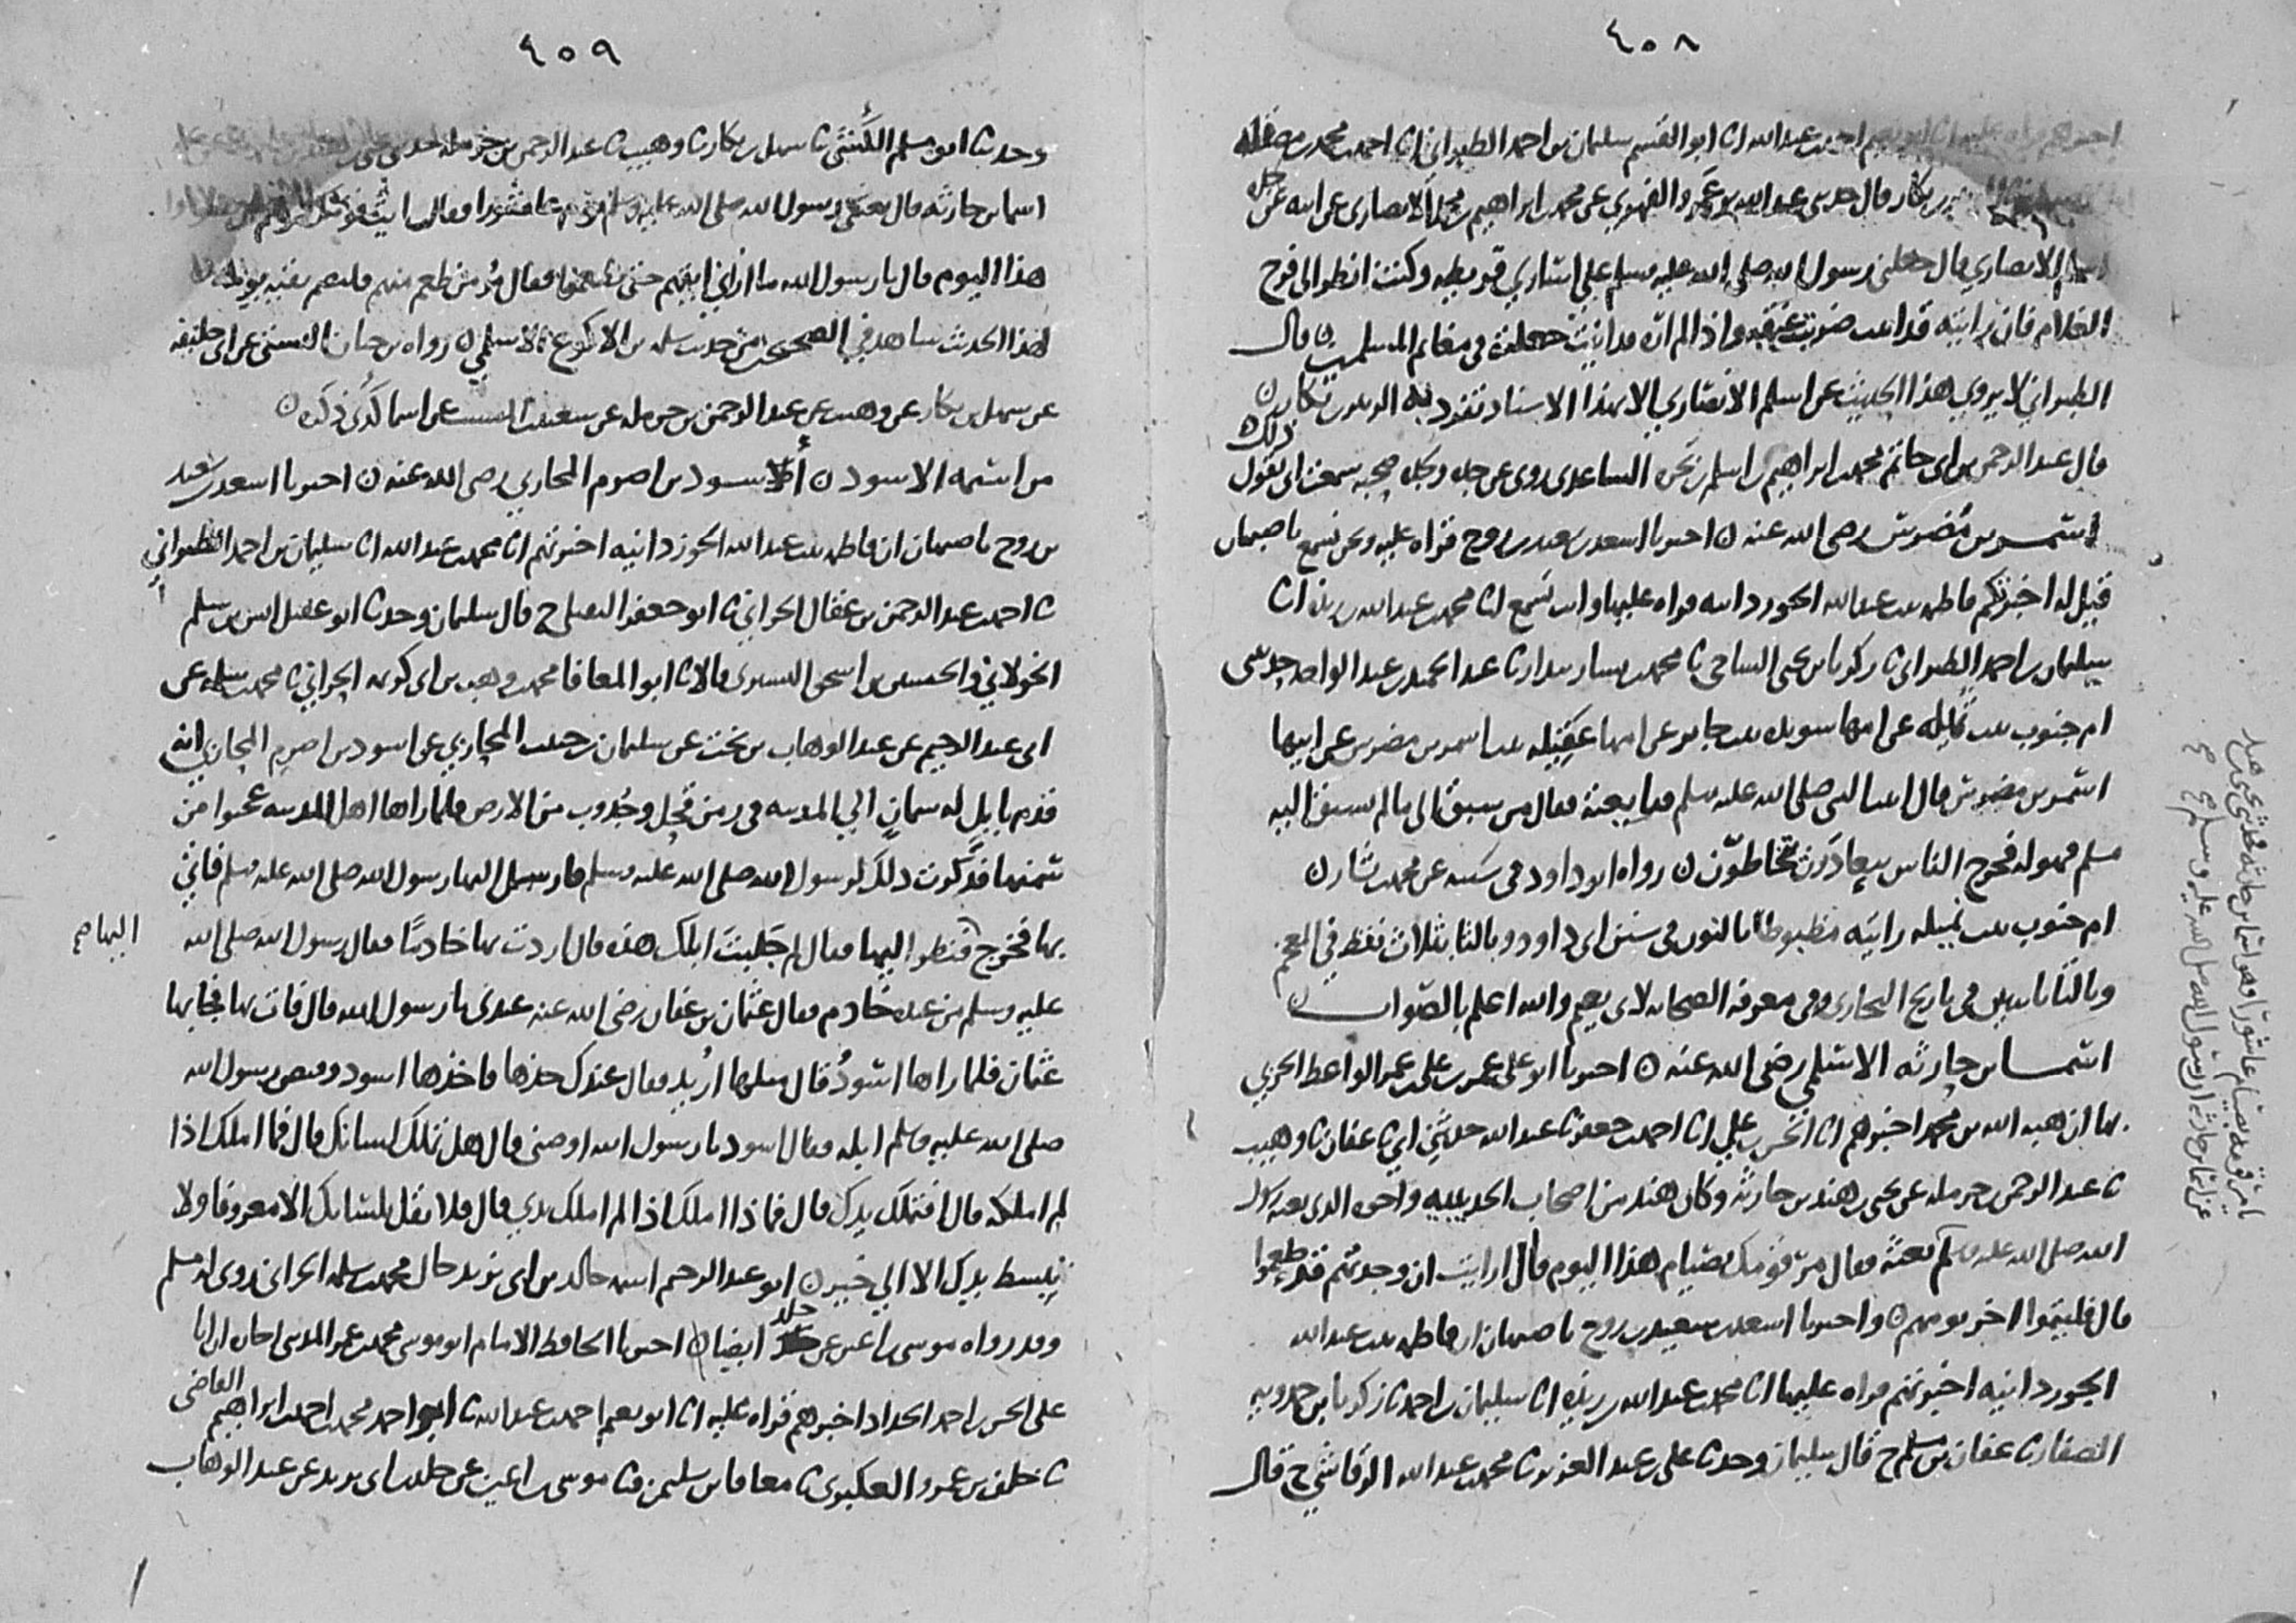 ٤٠٨
اخبرهم قراه عليه انا ابو نعيم احمد بن عبدالله انا ابو القسم سليمان بن احمد الطبراني انا احمد بن محمد بن
الزبير بن بكار قال حدثني عبد الله بن عمرو الفهري عن محمد بن ابراهيم بن محمد بن اسلم الانصاري عن ابيه عن جده
اسلم الانصاري قال جعلني رسول الله صلى الله عليه وسلم على اساري قريظه وكنت انظر الى فرج
الغلام فان رايته قد انبت ضربت عنقه واذا لم اره قد انبت جعلته في مغانم المسلمين ن قال
الطبراني لا يروي هذا الحديث عن اسلم الانصاري الا بهذا الاسناد تفرد به الزبير بن بكار ن
قال عبد الرحمن بن ابي حاتم محمد بن ابراهيم بن اسلم بن بجره الساعدي روى عن جده ولجده صحبه سمعت ابي يقول ذلك ن
اسمر بن مضرس رضي الله عنه ن اخبرنا اسعد بن سعيد بن روح قراه عليه ونحن نسمع باصبهان
قيل له اخبرتكم فاطمه بنت عبدالله الجوزدانيه قراه عليها وانت تسمع انا محمد بن عبدالله بن ريذه انا
سليمان بن احمد الطبراني نا زكريا بن يحيى الساجي نا محمد بن بشار بندار نا عبد الحميد بن عبد الواحد حدثتني
ام جنوب بنت ثميله عن امها سويده بنت جابر عن امها عقيله بنت اسمر بن مضرس عن ابيها
اسمر بن مضرس قال اتيت النبي صلى الله عليه وسلم فبايعته فقال من سبق الى ما لم يسبق اليه
مسلم فهو له فخرج الناس يتعادون يتخاطون ن رواه ابو داود في سننه عن محمد بن بشار ن
ام جنوب بنت نميله رايته مضبوطا بالنون في سنن ابي داود وبالثا بثلاث نقط في المعجم
وبالتا باثنين في تاريخ البخاري وفي معرفه الصحابه لابي نعيم والله اعلم بالصواب ن
اسما بن حارثه الاسلمي رضي الله عنه ن اخبرنا ابو علي عمر بن علي بن عمر الواعظ الحربي
بها ان هبه الله بن محمد اخبرهم انا الحسن بن علي انا احمد بن جعفر نا عبدالله حدثني ابي نا عفان نا وهيب
نا عبد الرحمن بن حرمله عن يحيى بن هند بن حارثه وكان هند من اصحاب الحديبيه واخوه الذي بعثه رسول
الله صلى الله عليه وسلم بعثه فقال مر قومك بصيام هذا اليوم قال ارايت ان وجدتهم قد طعموا
قال فليتموا اخر يومهم ن واخبرنا اسعد بن سعيد بن روح باصبهان ان فاطمه بنت عبدالله
الجوزدانيه اخبرتهم قراه عليها انا محمد بن عبدالله بن ريذه انا سليمان بن احمد نا زكريا بن حمدويه
الصفار نا عفان بن مسلم ح قال سليمان وحدثنا علي بن عبد العزيز نا محمد بن عبدالله الرقاشي ح قال
٤٠٩
وحدثنا ابو مسلم الكشي نا سهل بن بكار نا وهيب نا عبد الرحمن بن حرمله حدثني يحيى بن هند بن حارثه عن
اسما بن حارثه قال بعثني رسول الله صلى الله عليه وسلم يوم عاشورا فقال ايت قومك
هذا اليوم قال يا رسول الله ما اراني اتيهم حتى يطعموا فقال مر من طعم منهم فليصم بقيه يومه
لهذا الحديث شاهد في الصحيحين من حديث سلمه بن الاكوع الاسلمي ن رواه بن حبان البستي عن ابي خليفه
عن سهل بن بكار عن وهيب عن عبد الرحمن بن حرمله عن سعيد بن المسيب عن اسما كذى ذكره ن
من اسمه الاسود ن اسود بن اصرم المحاربي رضي الله عنه ن اخبرنا اسعد بن سعيد
بن روح باصبهان ان فاطمه بنت عبدالله الجوزدانيه اخبرتهم انا محمد بن عبدالله انا سليمان بن احمد الطبراني
نا احمد بن عبد الرحمن بن عقال الحراني نا ابو جعفر النفيلي ح قال سليمان وحدثنا ابو عقيل انس بن سلم
الخولاني والحسين بن اسحق التستري قالا نا ابو المعافا محمد بن وهب بن ابي كريمه الحراني نا محمد بن سلمه عن
ابي عبد الرحيم عن عبد الوهاب بن بخت عن سليمان بن حبيب المحاربي عن اسود بن اصرم المحاربي انه
قدم بابل له سمان الي المدينه في زمن قحل وجدوب من الارض فلما راها اهل المدينه عجبوا من
سمنها فذكرت ذلك لرسول الله صلى الله عليه وسلم فارسل اليها رسول الله صلى الله عليه وسلم فاتي
بها فخرج فنظر اليها فقال لم جلبت ابلك هذه قال اردت بها خادما فقال رسول الله صلى الله
عليه وسلم من عنده خادم فقال عثمان بن عفان رضي الله عنه عندي يا رسول الله قال فات بها فجا بها
عثمان فلما راها اسود قال مثلها اريد فقال عندك خذها فاخذها اسود وقبض رسول الله
صلى الله عليه وسلم ابله فقال اسود يا رسول الله اوصني قال هل تملك لسانك قال فما املك اذا
لم املكه قال افتملك يدك قال فماذا املك اذا لم املك يدي قال فلا تقل بلسانك الا معروفا ولا
تبسط يدك الا الي خير ن ابو عبد الرحيم اسمه خالد بن ابي يزيد خال محمد بن سلمه الحراني روى له مسلم
وقد رواه موسى بن اعين عن خلد ايضا ن اخبرنا الحافظ الامام ابو موسى محمد بن عمر المديني اجازه ان ابا
علي الحسن بن احمد الحداد اخبرهم قراه عليه انا ابو نعيم احمد بن عبدالله نا ابو احمد محمد بن احمد بن ابراهيم القاضي
نا خلف بن عمرو العكبري نا معافا بن سليمن نا موسى بن اعين عن خلد بن ابي يزيد عن عبد الوهاب
اليها صح